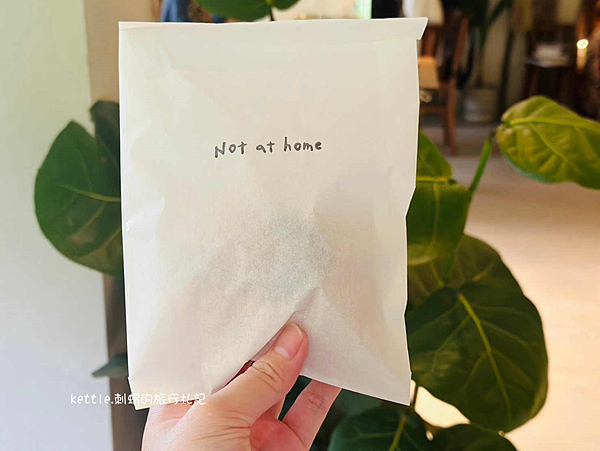 Not at home
kettle.刺蝟的旅行札記